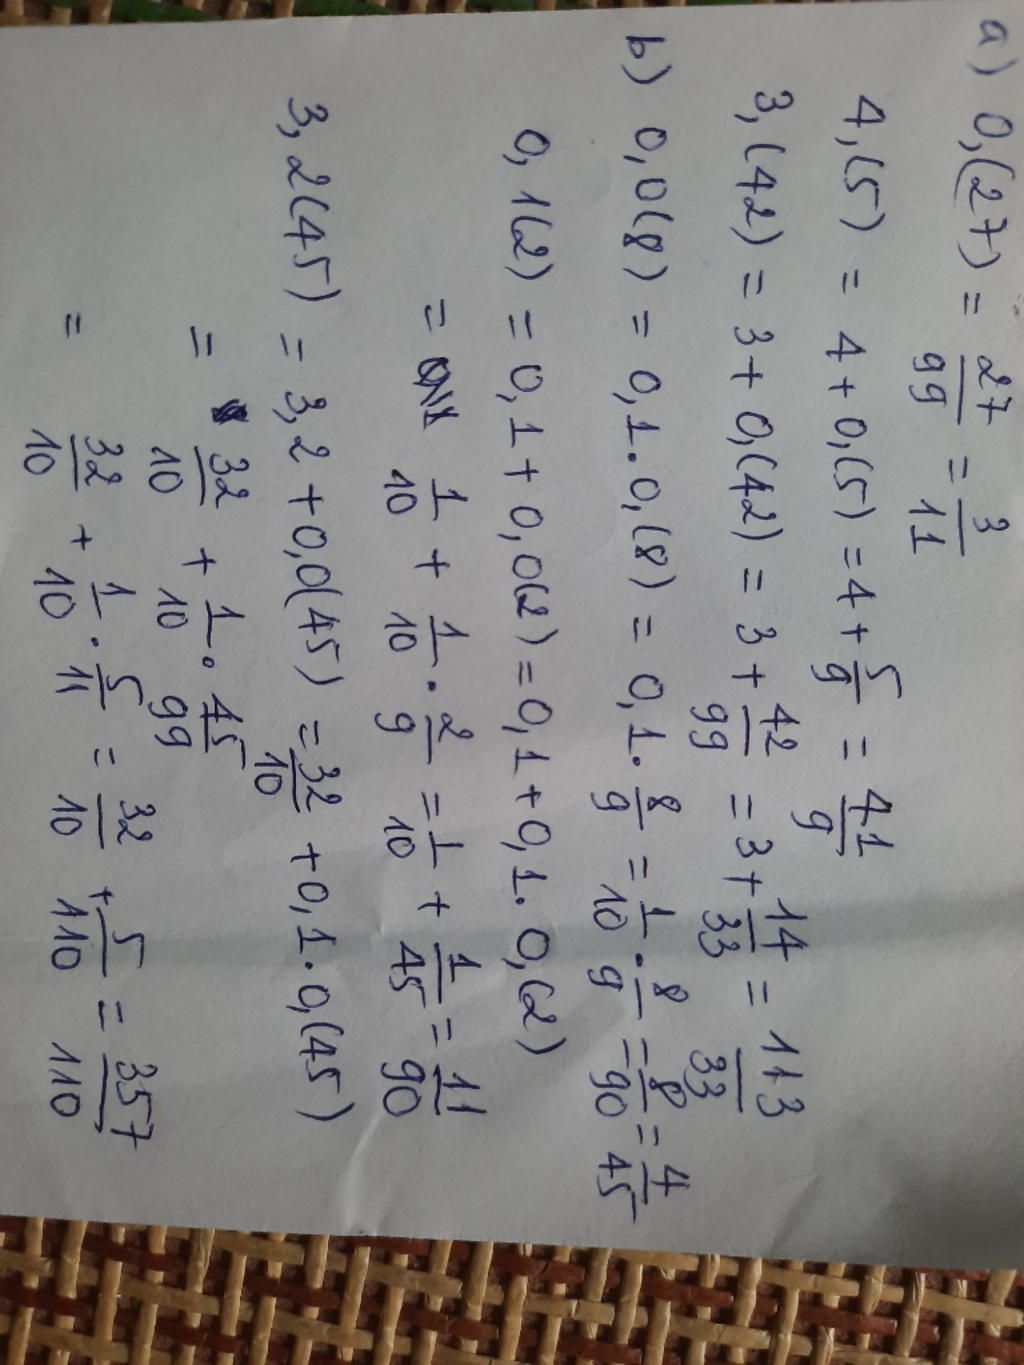 a) 0,(27) = 27/99 = 3/11
4,(5) = 4 + 0,(5) = 4 + 5/9 = 41/9
3,(42) = 3 + 0,(42) = 3 + 42/99 = 3 + 14/33 = 113/33
b) 0,0(8) = 0,1 . 0,(8) = 0,1 . 8/9 = 1/10 . 8/9 = 8/90 = 4/45
0,1(2) = 0,1 + 0,0(2) = 0,1 + 0,1 . 0,(2)
= 1/10 + 1/10 . 2/9 = 1/10 + 1/45 = 11/90
3,2(45) = 3,2 + 0,0(45) = 32/10 + 0,1 . 0,(45)
= 32/10 + 1/10 . 45/99
= 32/10 + 1/10 . 5/11 = 32/10 + 5/110 = 357/110